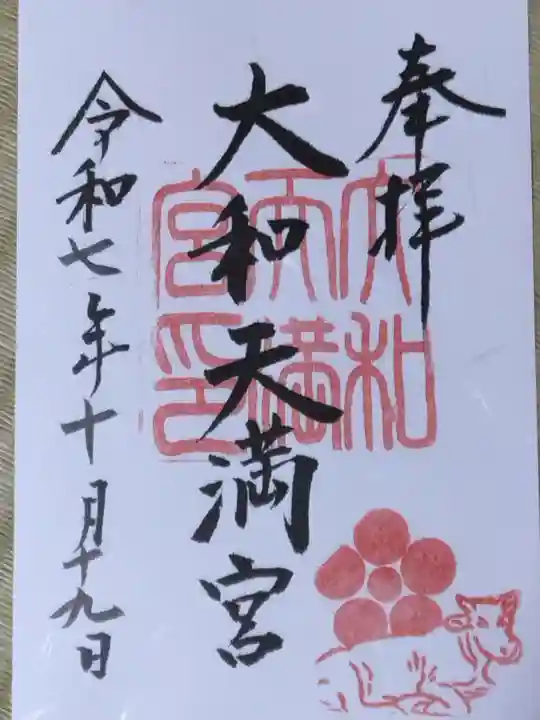 奉拝
大和天満宮
令和七年十月十九日
大和
天満
宮印